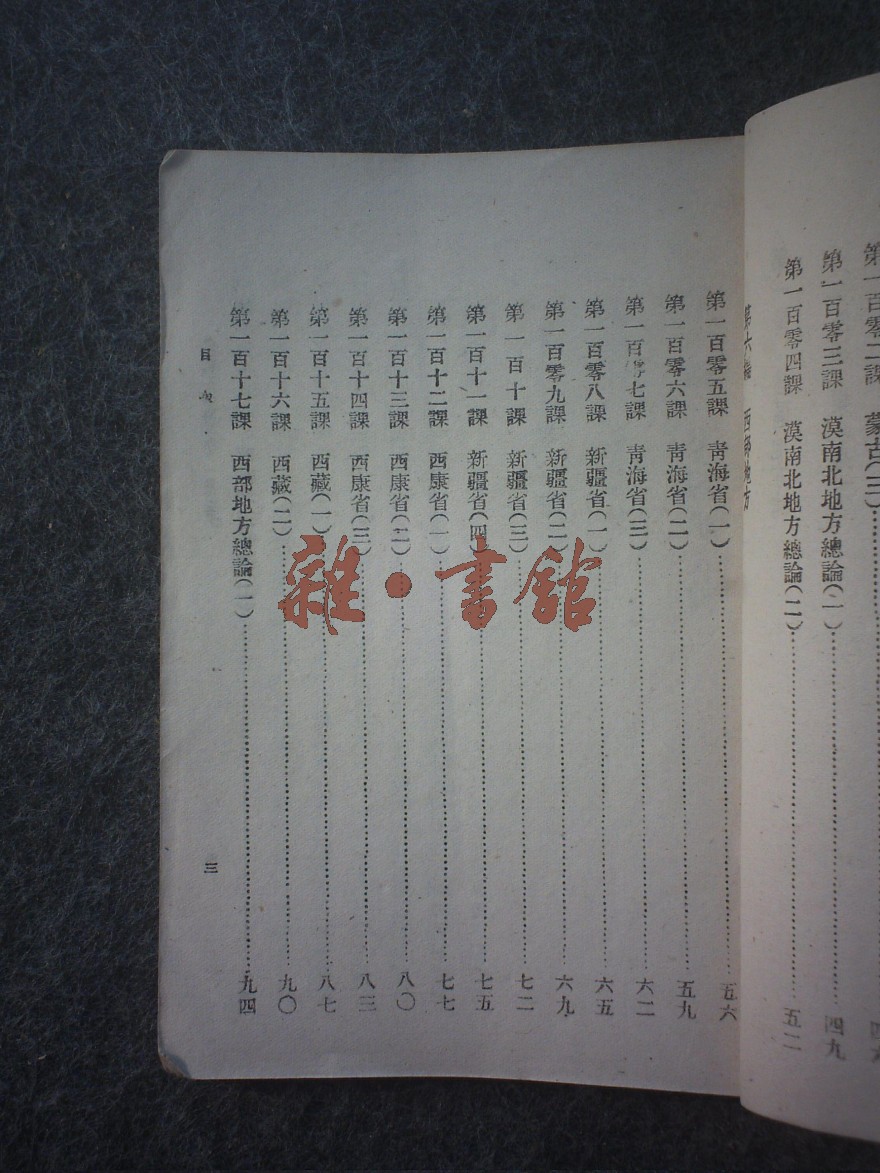 第一百零二課　蒙古(三)
第一百零三課　漠南北地方總論(一)　四九
第一百零四課　漠南北地方總論(二)　五二
西部地方
第一百零五課　青海省(一)　五六
第一百零六課　青海省(二)　五九
第一百零七課　青海省(三)　六二
第一百零八課　新疆省(一)　六五
第一百零九課　新疆省(二)　六九
第一百十課　新疆省(三)　七二
第一百十一課　新疆省(四)　七五
第一百十二課　西康省(一)　七七
第一百十三課　西康省(二)　八〇
第一百十四課　西康省(三)　八三
第一百十五課　西藏(一)　八七
第一百十六課　西藏(二)　九〇
第一百十七課　西部地方總論(一)　九四
目　三
雜·書館